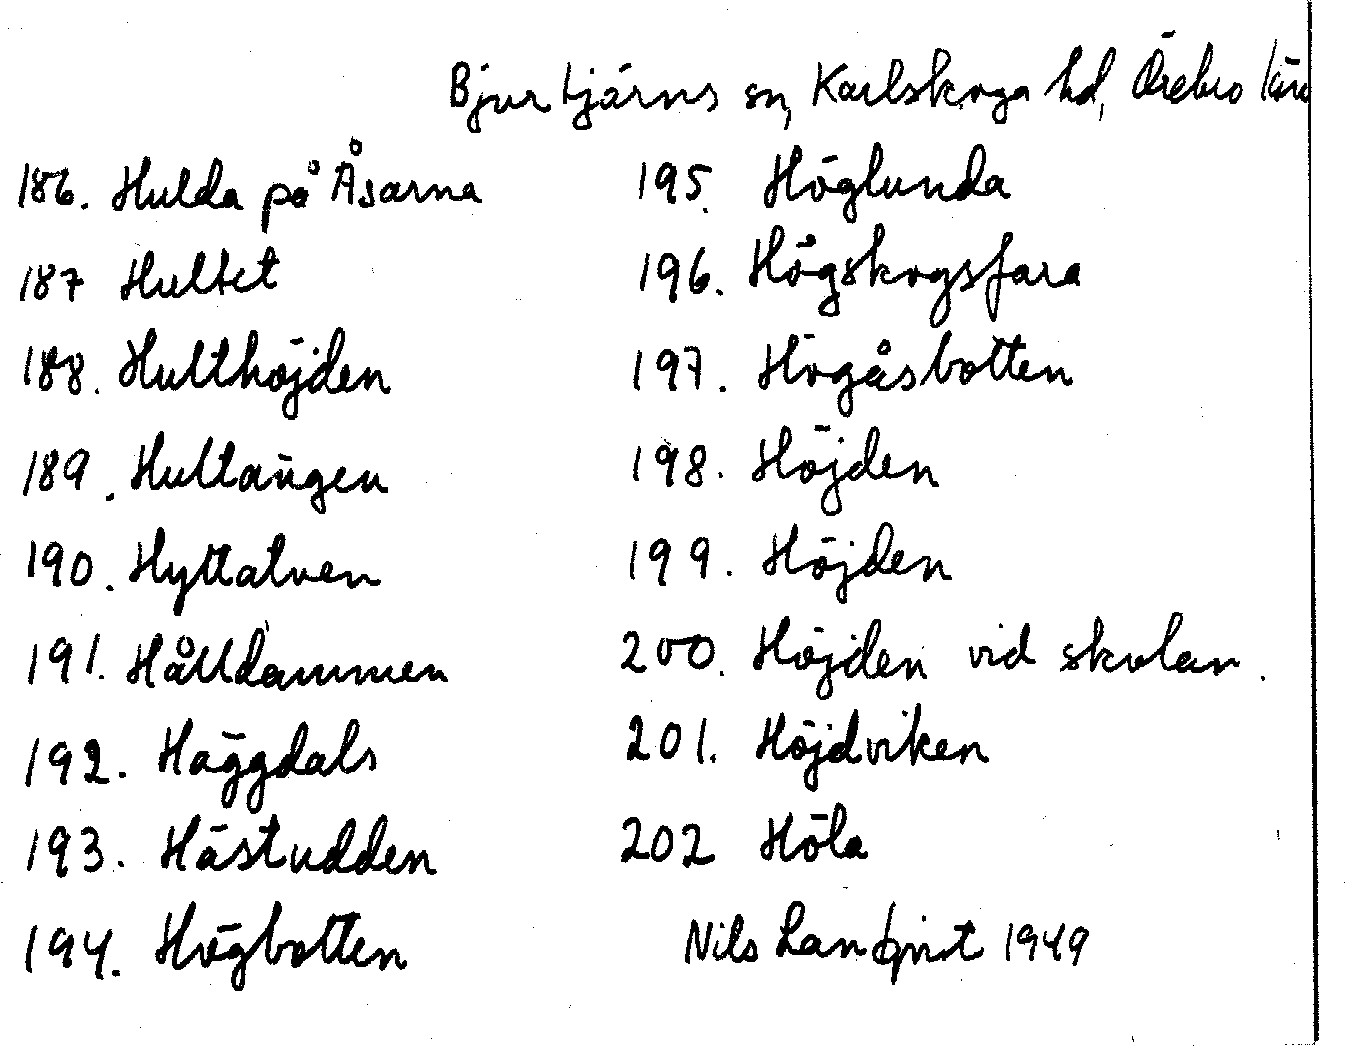 Bjurtjärns sn, Karlskoga hd, Örebro län
186. Hulda på Åsarna
187 Hultet
188. Hulthöjden
189. Hultängen
190. Hyttalven
191. Hålldammen
192. Häggdals
193. Hästudden
194. Högbotten
195. Höglunda
196. Högskogsfara
197. Högåsbotten
198. Höjden
199. Höjden
200. Höjden vid skolan.
201. Höjdviken
202 Höla
Nils Landqvist 1949